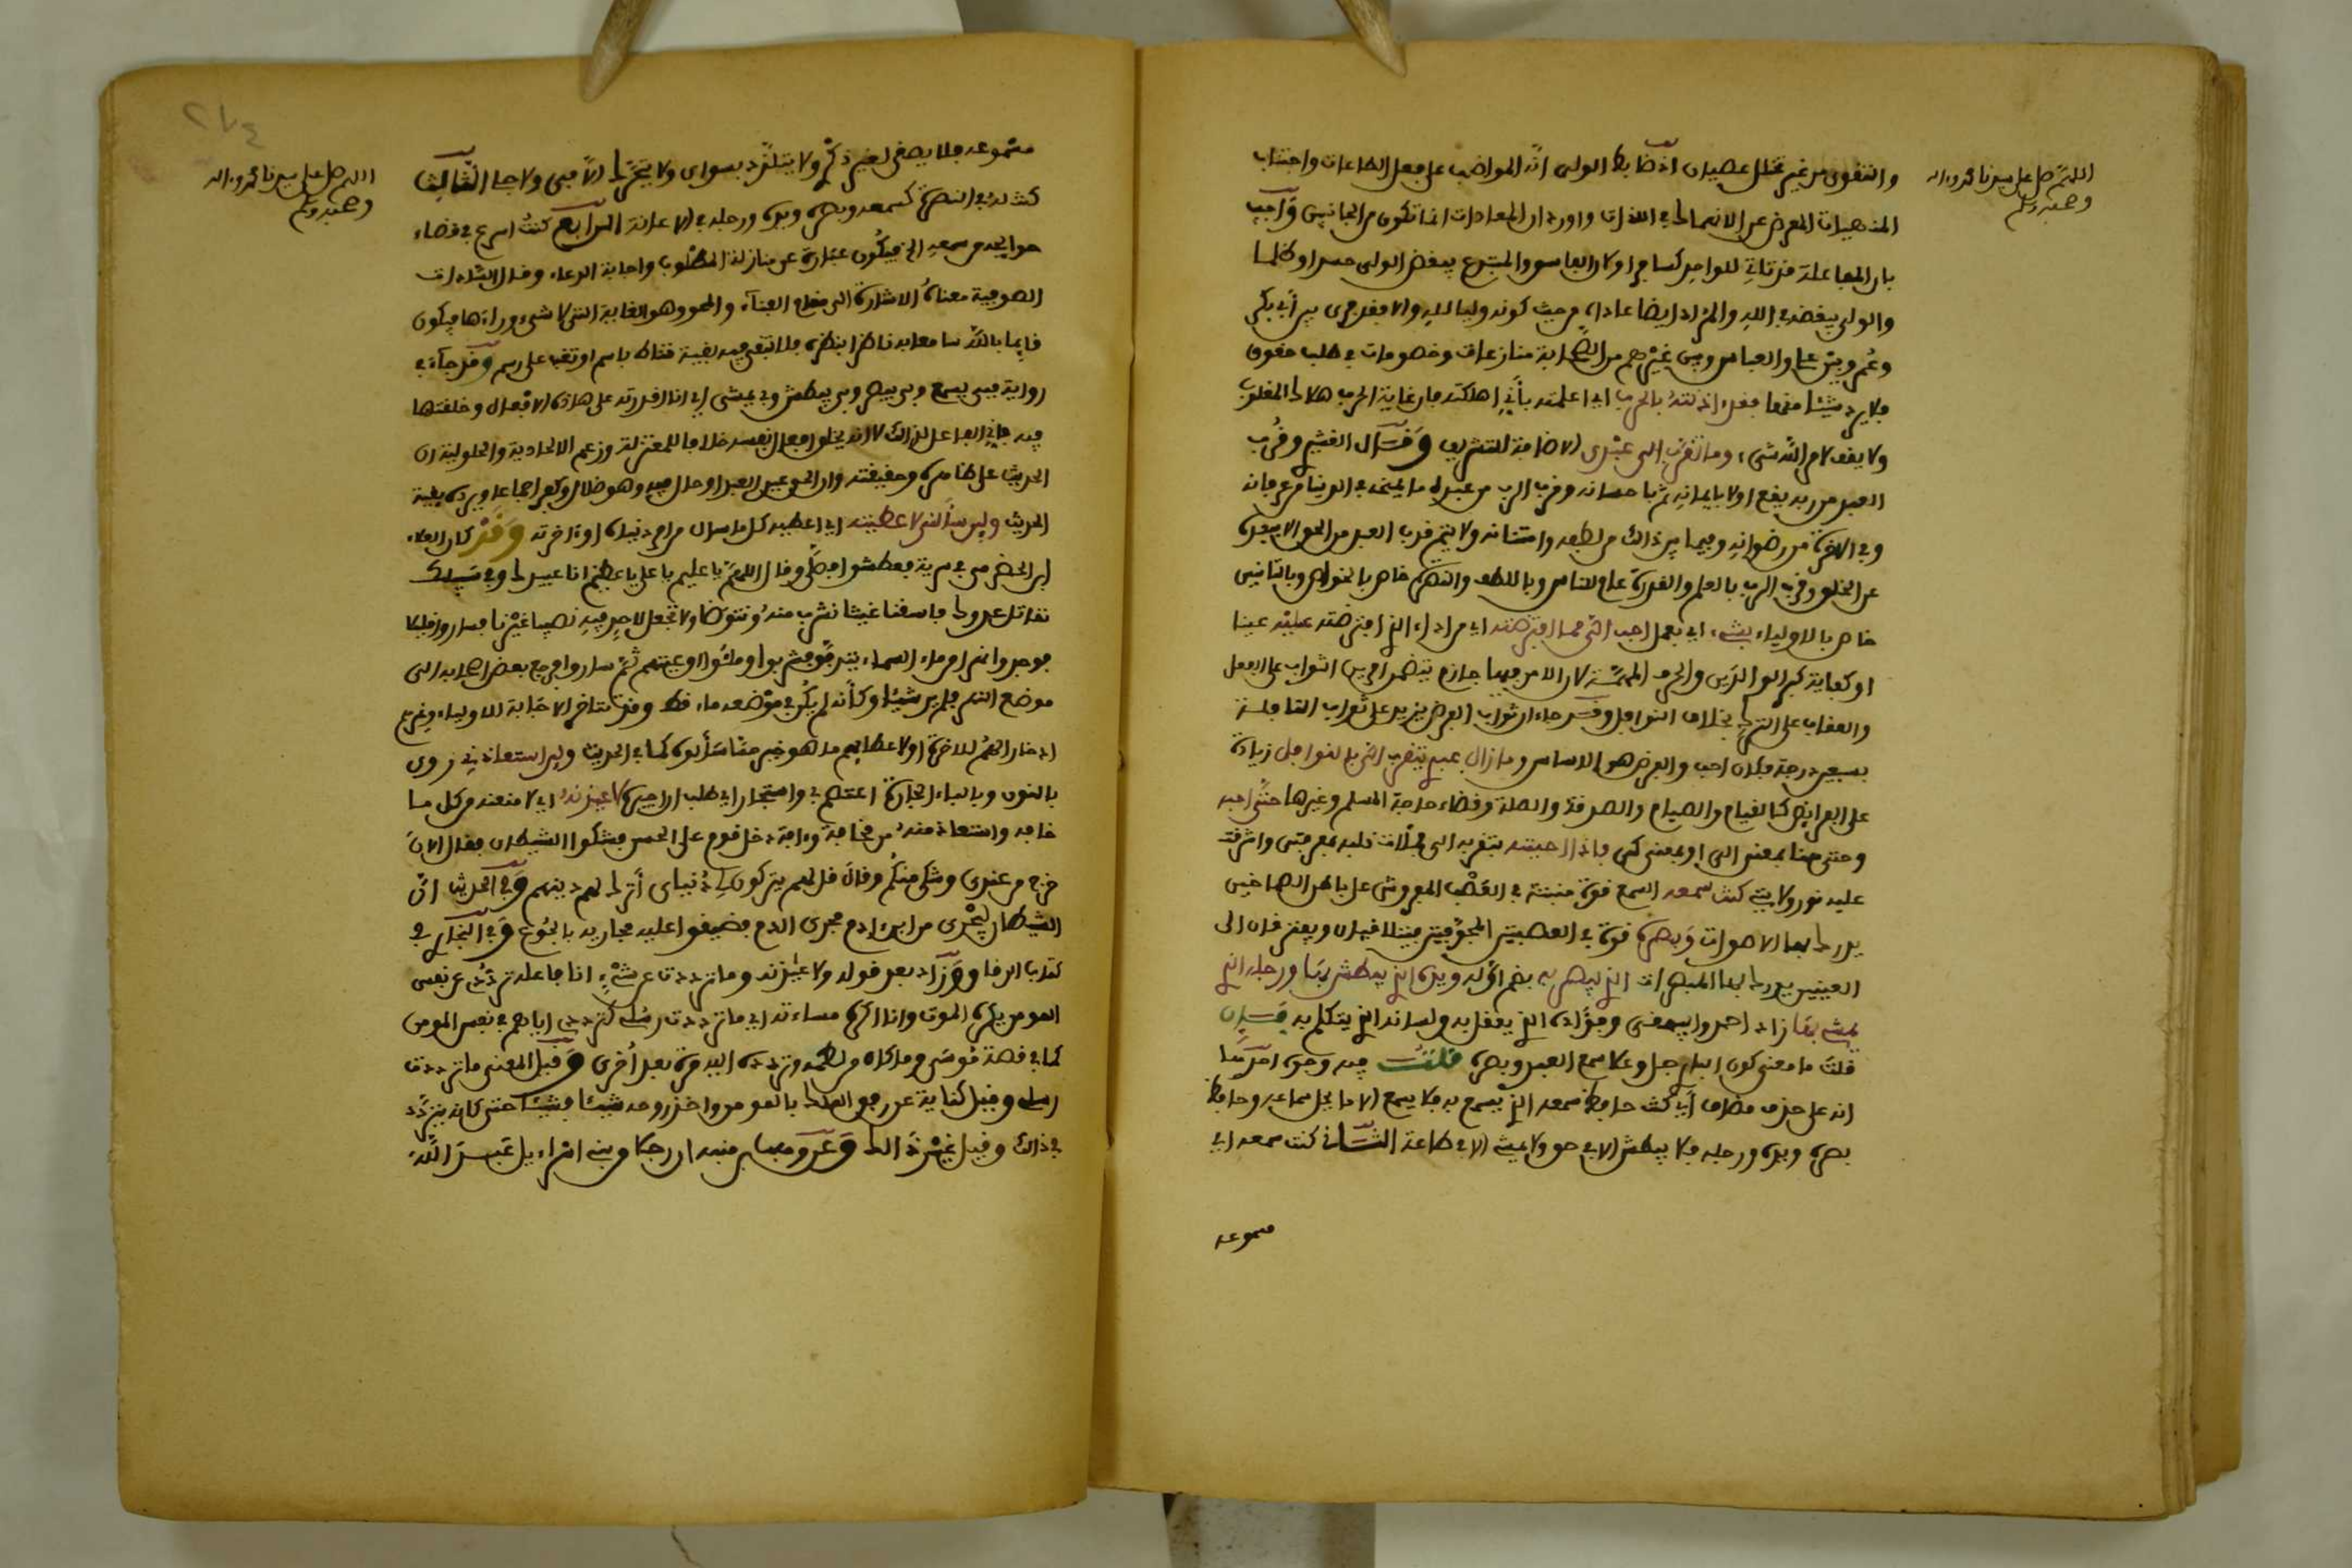 اللهم صل على سيدنا محمد وءاله
وصحبه وسلم
والتقوى من غير تخلل عصيان اذ ضابط الولى انه المواظب على فعل الطاعات واجتناب
المنهيات المعرض عن الانهماك في اللذات واورد ان المعادات انما تكون من الجانبين وأجيب
بان المفاعلة قد تاتي للواحد كسافر او كان الفاسق والمبتدع يبغض الولى حسدا وظلما
والولى يبغضه في الله والمراد ايضا عاداه من حيث كونه وليا لله والا فقد جرى بين أبي بكر
وعمر وبين على والعباس وبين غيرهم من الصحابة منازعات وخصومات في طلب حقوق
فلا يرد شيئا منها فقد اذنته بالحرب اي اعلمته بأني اهلكته فان غاية الحرب هلاك المغلوب
ولا يقف لامر الله شيء وما تقرب الى عبدى الاضافة للتشريف وقال القشيري قرب
العبد من ربه يقع اولا بايمانه ثم باحسانه وقرب الرب من عبده ما يخصه في الدنيا من عرفانه
وفي الاخرة من رضوانه وفيما بين ذالك من لطفه وامتنانه ولا يتم قرب العبد من الحق الا ببعده
عن الخلق وقرب الرب بالعلم والقدرة عام للناس وباللطف والنصرة خاص بالخواص وبالتانيس
خاص بالاولياء بشيء اي بعمل احب الي مما افترضته اي من اداء الذي افترضته عليه عينا
او كفاية كبر الوالدين والحرف المهمة لان الامر فيها جازم يتضمن امرين الثواب على الفعل
والعقاب على الترك بخلاف النوافل وقد جاء ان ثواب الفرض يزيد على ثواب النافلة
بسبعين درجة فكان احب والفرض هو الاساس وما زال عبدي يتقرب الي بالنوافل زيادة
على الفرائض كالقيام والصيام والصدقة والصلة وقضاء حاجة المسلم وغيرها حتى احبه
وحتى هنا بمعنى الى او بمعنى كى فاذا احببته بتقربه الى ملأت قلبه بمعرفتى واشرقت
عليه نور ولايتى كنت سمعه السمع قوة منبتة في العصب المفروش على باطن الصماخين
يدرك بها الاصوات وبصره قوة في العصبتين المجوفتين يتلاقيان ويفترقان الى
العينين يدرك بها المبصرات الذي يبصر به بضم اوله ويده التي يبطش بها ورجله التي
يمشي بها زاد احمد والبيهقي وفؤاده الذي يعقل به ولسانه الذي يتكلم به فان
قلت ما معنى كون الباري جل وعلا سمع العبد وبصره قلت فيه وجوه احدها
انه على حذف مضاف أي كنت حافظ سمعه الذي يسمع به فلا يسمع الا ما يحل سماعه وحافظ
بصره ويده ورجله فلا يبطش الا في حق ولا يمشي الا في طاعة الثاني كنت سمعه اي
مسموعه
اللهم صل على سيدنا محمد وءاله
وصحبه وسلم
مسموعه فلا يصغى لغير ذكرى ولا يتلذذ بسواى ولا يتحرك الا فيى ولا جلي الثالث
كنت له في النصرة كسمعه وبصره ويده ورجله في الاعانة الرابع كنت اسرع في قضاء
حوائجه من سمعه الخ فيكون عبارة عن منازلة المطلوب واجابة الدعاء وقال السادات
الصوفية معناه الاشارة الى مقام الفناء والمحو وهو الغاية التى لا شيء وراءها فيكون
قايما بالله سامعا به ناظرا بنظره فلا تبقى معه بقية تناط باسم او تقف على رسم وقد جاء في
رواية فبى يسمع وبى يبصر وبى يبطش وبى يمشى اي انا اقدرته على هاذه الافعال وخلقتها
فيه فاني الفاعل لذالك لا انه يخلق افعال نفسه خلافا للمعتزلة وزعم الاتحادية والحلولية ان
الحديث على ظاهره وحقيقته وان الحق عين العبد او حال فيه وهو ضلال وكفر اجماعا ويرده بقية
الحديث ولين سألني لاعطينه اي اعطيه كل ما سال من امر دنياه او ءاخرته وقد كان العلاء
ابن الحضرمى في سرية فعطشوا فصلى وقال اللهم يا عليم يا على يا عظيم انا عبيدك وفي سبيلك
نقاتل عدوك فاسقنا غيثا نشرب منه ونتوضا ولا تجعل لاحد فيه نصيبا غيرنا فساروا قليلا
فوجدوا نهرا من ماء السماء يتدفق فشربوا وملئوا اوعيتهم ثم ساروا فرجع بعض اصحابه الى
موضع النهر فلم ير شيئا وكأنه لم يكن في موضعه ماء قط وقد تتاخر الاجابة للاولياء وغيرهم
ادخارا لهم للاخرة او لاعطايهم ما هو خير مما سألوه كما في الحديث ولين استعاذني روى
بالنون وبالباء الجارة اعتصم بي واستجار اي طلب ان اجيره لاعيذنه اي لامنعنه من كل ما
خافه واستعاذ منه من مخافة وءافة دخل قوم على الحسن فشكوا الشيطان فقال الان
خرج من عندى وشكى منكم وقال قل لهم يتركون لي دنياى أترك لهم دينهم وفي الحديث ان
الشيطان ليجرى من ابن ءادم مجرى الدم فضيقوا عليه مجاريه بالجوع وفي البخاري في
كتاب الرقاق زاد بعد قوله ولاعيذنه وما ترددت عن شيء انا فاعله ترددى عن نفس
المومن يكره الموت وانا اكره مساءته اي ما ترددت رسلى كترددى اياهم في نفس المومن
كما في قصة موسى وما كان من لطمه وتردده اليه مرة بعد اخرى وقيل المعنى ما ترددت
رسلى وقيل كناية عن رفق الملك بالمومن واخذ روحه شيئا فشيئا حتى كانه يتردد
في ذالك وقيل غير ذالك وعن وهب بن منبه ان رجلا من بني اسراءيل عبد الله